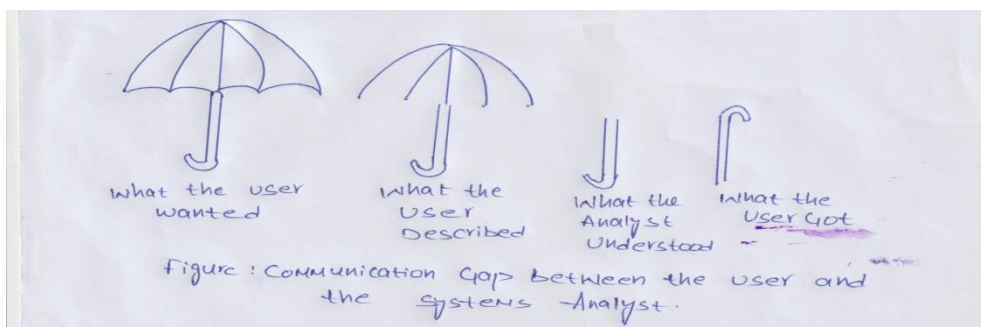 What the user
wanted
What the
User
Described
What the
Analyst
Understood
What the
User Got
Figure : Communication Gap between the user and
the systems Analyst.